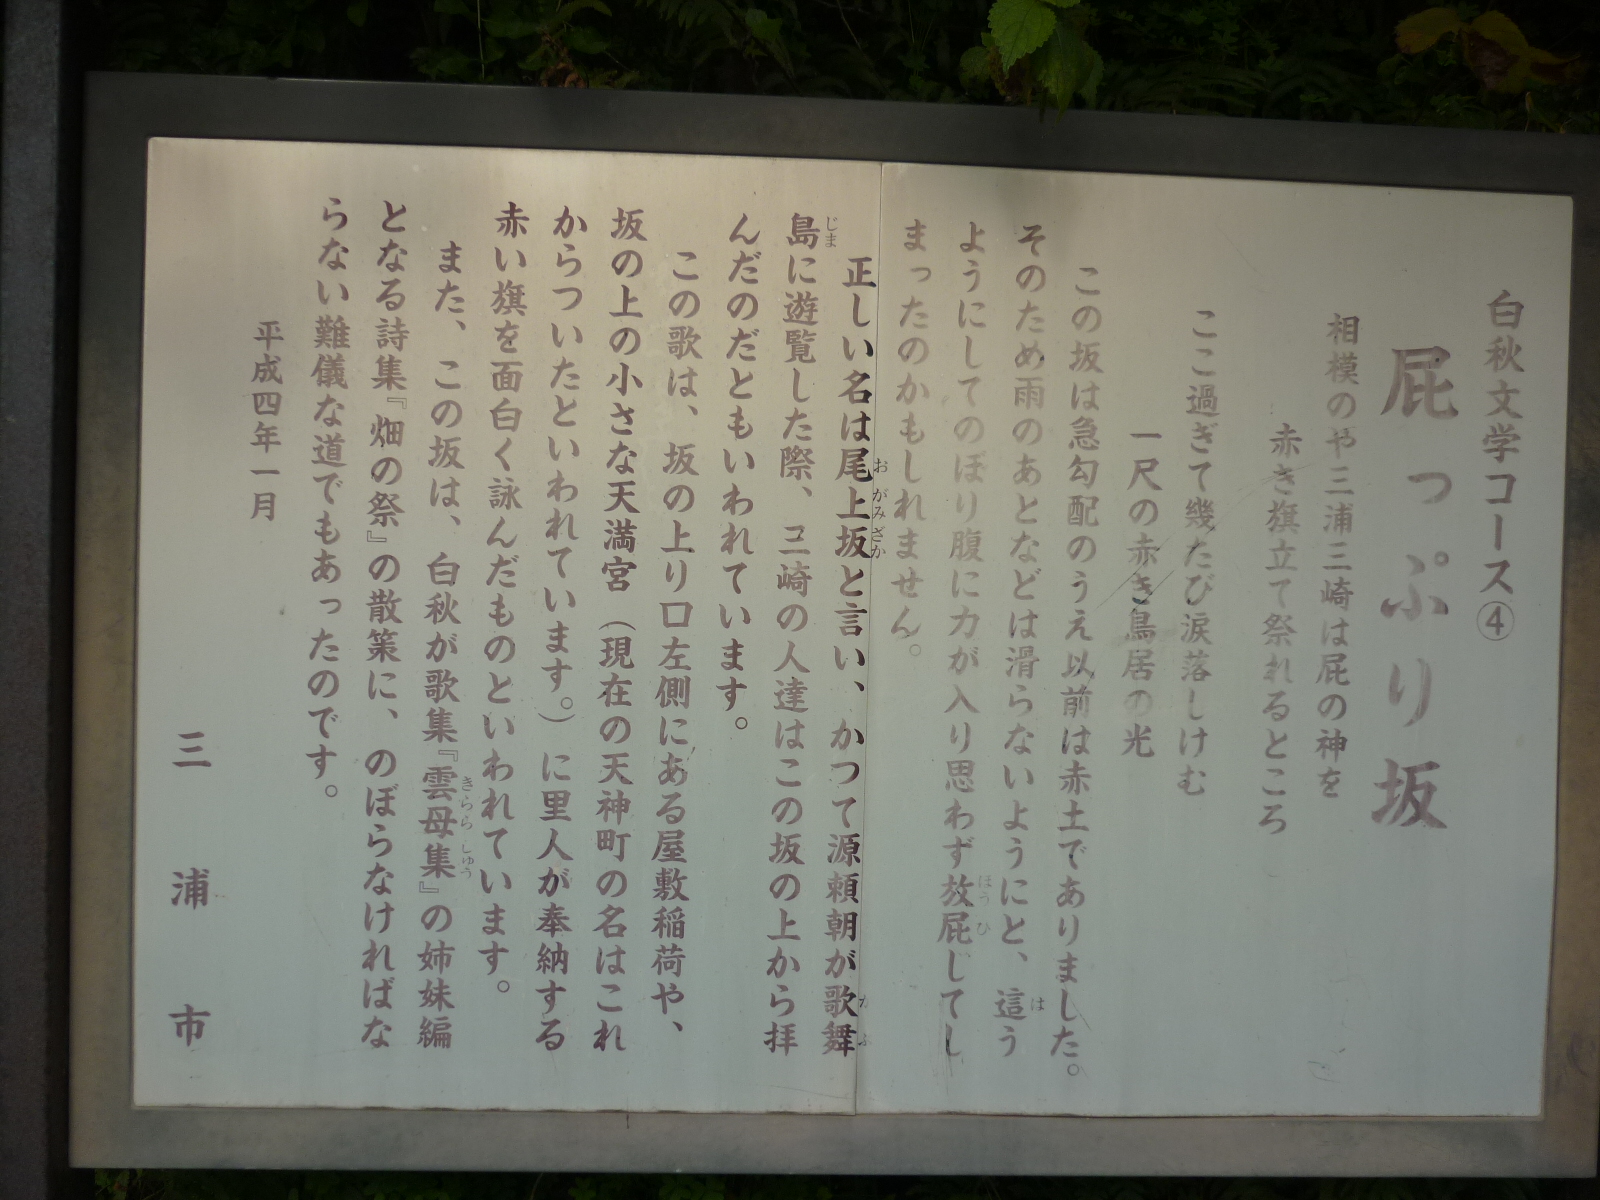 白秋文学コース④
屁っぷり坂
相模のや三浦三崎は屁の神を
赤き旗立て祭れるところ
ここ過ぎて幾たび涙落しけむ
一尺の赤き鳥居の光
この坂は急勾配のうえ以前は赤土でありました。
そのため雨のあとなどは滑らないようにと、這う
ようにしてのぼり腹に力が入り思わず放屁じてし
まったのかもしれません。
正しい名は尾上坂と言い、かつて源頼朝が歌舞
島に遊覧した際、三崎の人達はこの坂の上から拝
んだのだともいわれています。
この歌は、坂の上り口左側にある屋敷稲荷や、
坂の上の小さな天満宮（現在の天神町の名はこれ
からついたといわれています。）に里人が奉納する
赤い旗を面白く詠んだものといわれています。
また、この坂は、白秋が歌集『雲母集』の姉妹編
となる詩集『畑の祭』の散策に、のぼらなければな
らない難儀な道でもあったのです。
平成四年一月
三浦市